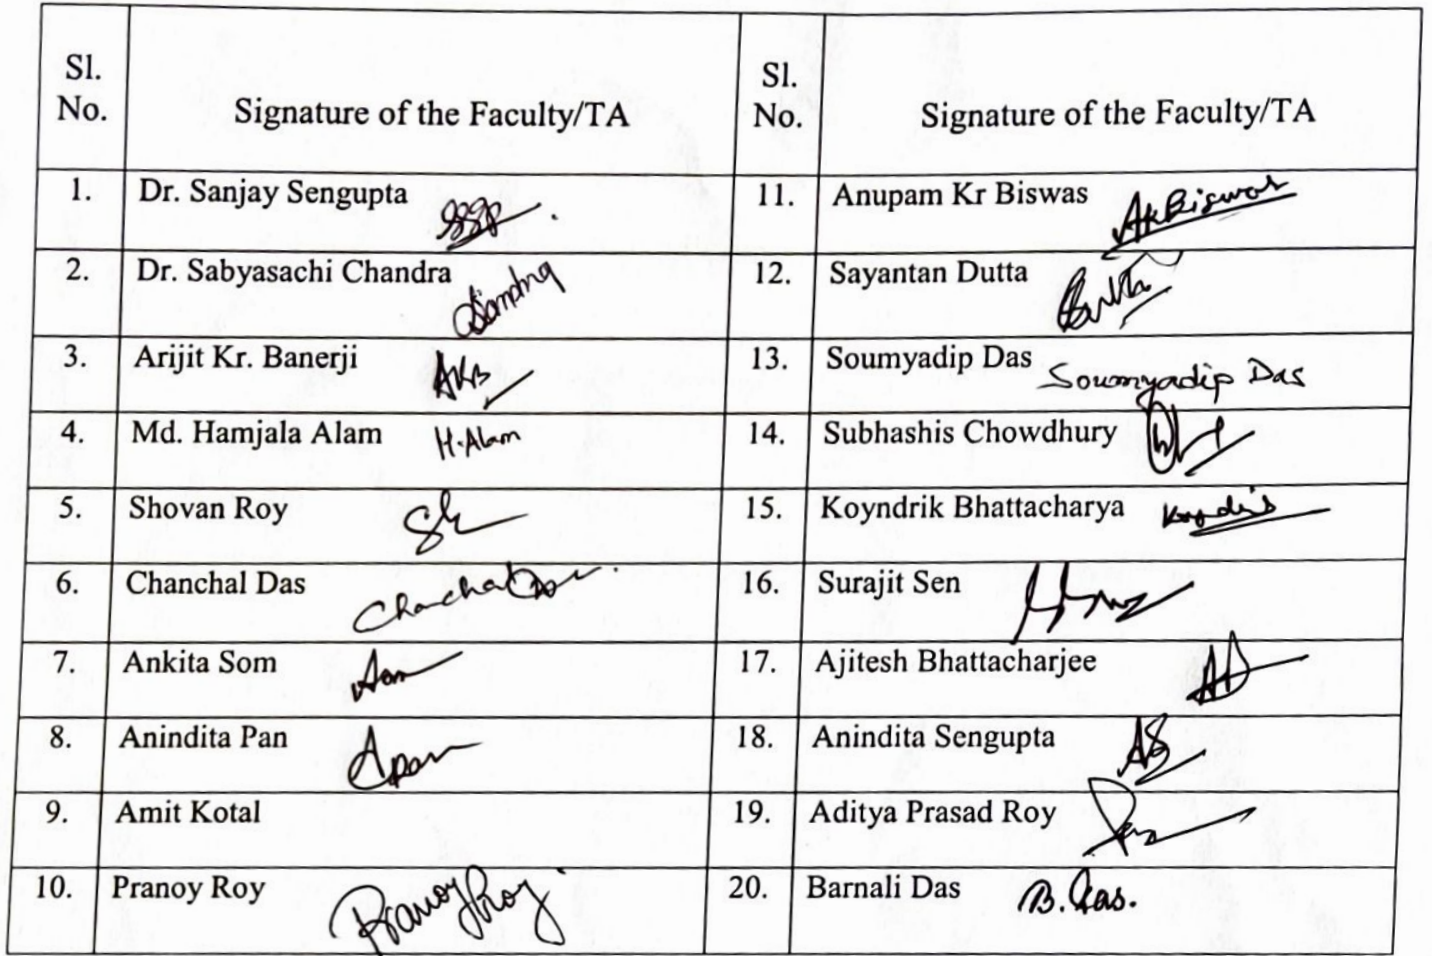 Sl. No. Signature of the Faculty/TA Sl. No. Signature of the Faculty/TA
1. Dr. Sanjay Sengupta 11. Anupam Kr Biswas AkBiswas
2. Dr. Sabyasachi Chandra 12. Sayantan Dutta
3. Arijit Kr. Banerji AKB 13. Soumyadip Das Soumyadip Das
4. Md. Hamjala Alam H.Alam 14. Subhashis Chowdhury
5. Shovan Roy 15. Koyndrik Bhattacharya
6. Chanchal Das 16. Surajit Sen
7. Ankita Som 17. Ajitesh Bhattacharjee
8. Anindita Pan Apan 18. Anindita Sengupta AS
9. Amit Kotal 19. Aditya Prasad Roy
10. Pranoy Roy Pranoy Roy. 20. Barnali Das B. Das.